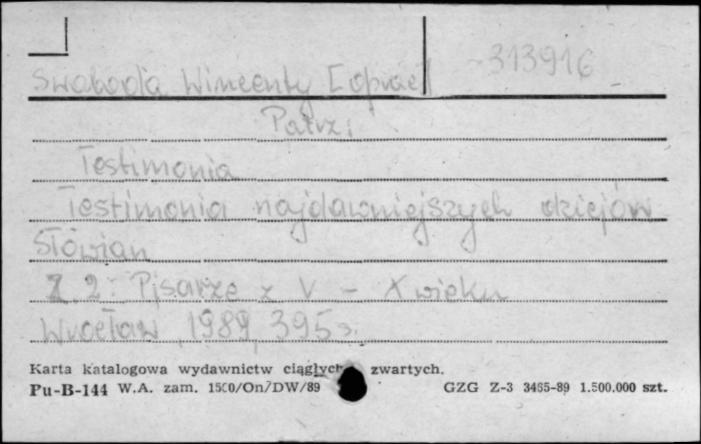 Swoboda Wincenty [oprac]
313916
Patrz:
Testimonia
Testimonia najdawniejszych dziejów
Słowian
Z. 2: Pisarze z V - X wieku
Wrocław, 1989, 395 s.
Karta katalogowa wydawnictw ciągłych zwartych.
Pu-B-144 W.A. zam. 1500/On/DW/89
GZG Z-3 3465-89 1.500.000 szt.